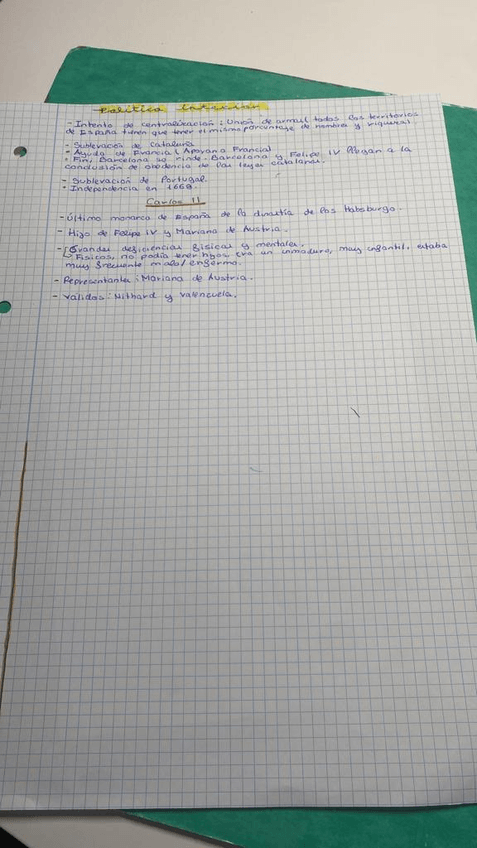 Política interior
- Intento de centralización: Unión de armas( todos los territorios
de España tienen que tener el mismo porcentaje de hombres y riqueza).
- Sublevación de Cataluña
- Ayuda de Francia ( Apoyano Francia)
• Fin, Barcelona se rinde. Barcelona y Felipe IV llegan a la
conclusión de obedencia de las leyes catalanas.
- Sublevación de Portugal.
• Independencia en 1668.
Carlos II
- Último monarca de España de la dinastía de los Habsburgo.
- Hijo de Felipe IV y Mariana de Austria.
- Grandes deficiencias físicas y mentales.
Físicos, no podía tener hijos era un inmaduro, muy infantil, estaba
muy frecuente malo/enfermo.
- Representante: Mariana de Austria.
- Validos: Nithard y Valenzuela.